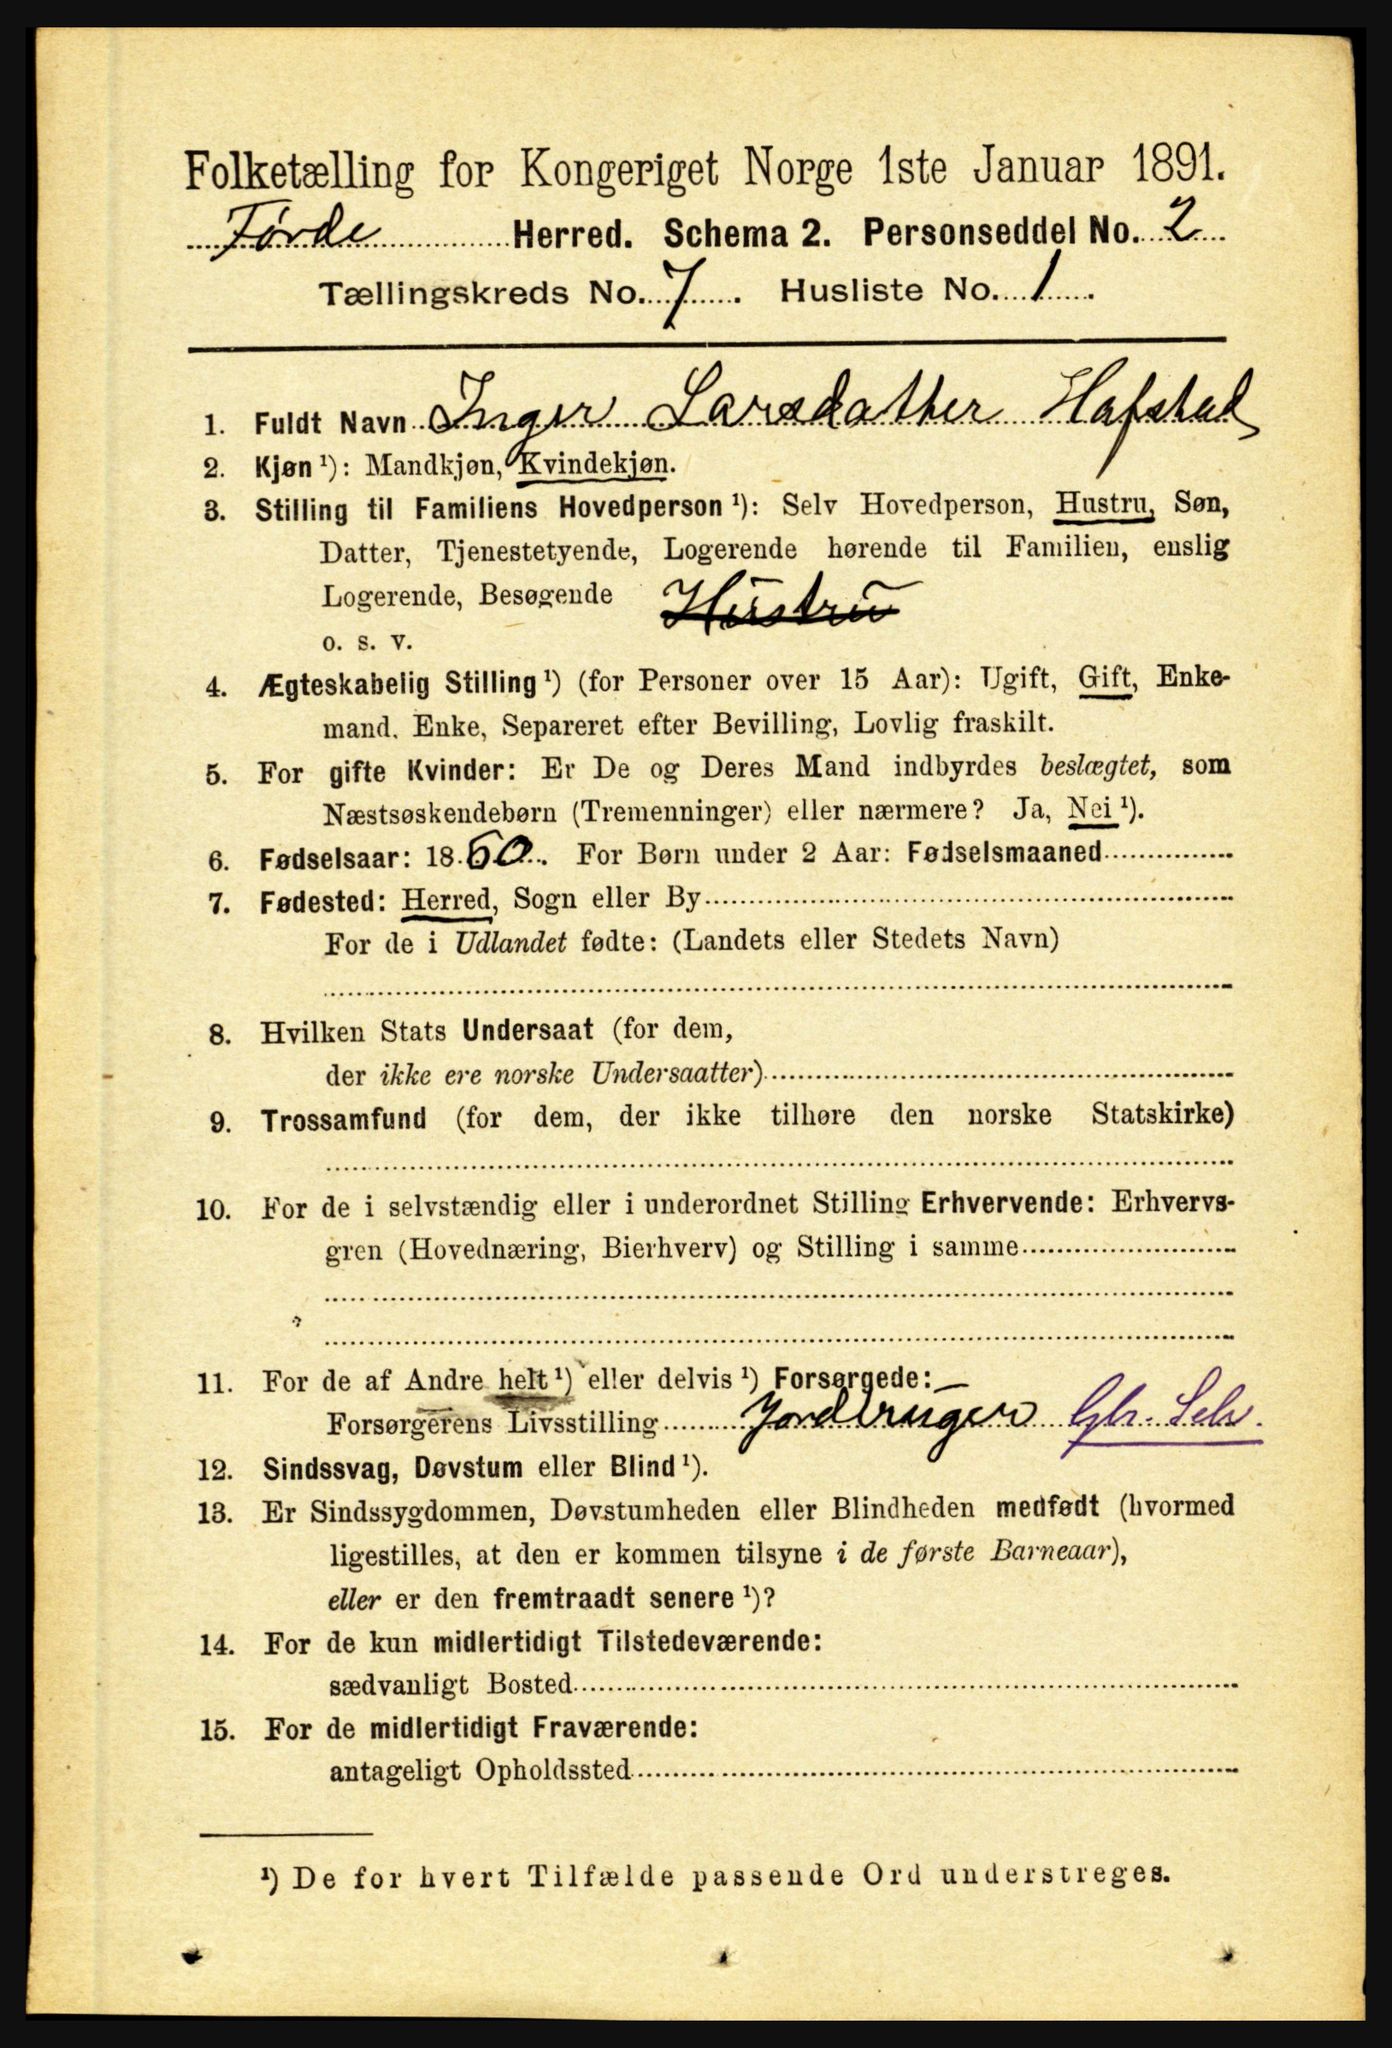 Folketælling for Kongeriget Norge 1ste Januar 1891.
Førde Herred. Schema 2. Personseddel No. 2
Tællingskreds No. 7. Husliste No. 1.
1. Fuldt Navn Inger Larsdatter Hafstad
2. Kjøn ¹): Mandkjøn, Kvindekjøn.
3. Stilling til Familiens Hovedperson ¹): Selv Hovedperson, Hustru, Søn,
Datter, Tjenestetyende, Logerende hørende til Familien, enslig
Logerende, Besøgende Hustru
o. s. v.
4. Ægteskabelig Stilling ¹) (for Personer over 15 Aar): Ugift, Gift, Enke-
mand, Enke, Separeret efter Bevilling, Lovlig fraskilt.
5. For gifte Kvinder: Er De og Deres Mand indbyrdes beslægtet, som
Næstsøskendebørn (Tremenninger) eller nærmere? Ja, Nei ¹).
6. Fødselsaar: 1860. For Børn under 2 Aar: Fødselsmaaned
7. Fødested: Herred, Sogn eller By
For de i Udlandet fødte: (Landets eller Stedets Navn)
8. Hvilken Stats Undersaat (for dem,
der ikke ere norske Undersaatter)
9. Trossamfund (for dem, der ikke tilhøre den norske Statskirke)
10. For de i selvstændig eller i underordnet Stilling Erhvervende: Erhvervs-
gren (Hovednæring, Bierhverv) og Stilling i samme
11. For de af Andre helt ¹) eller delvis ¹) Forsørgede: —
Forsørgerens Livsstilling Jordbruger Gbr. Selv.
12. Sindssvag, Døvstum eller Blind ¹).
13. Er Sindssygdommen, Døvstumheden eller Blindheden medfødt (hvormed
ligestilles, at den er kommen tilsyne i de første Barneaar),
eller er den fremtraadt senere ¹)?
14. For de kun midlertidigt Tilstedeværende:
sædvanligt Bosted
15. For de midlertidigt Fraværende:
antageligt Opholdssted
¹) De for hvert Tilfælde passende Ord understreges.